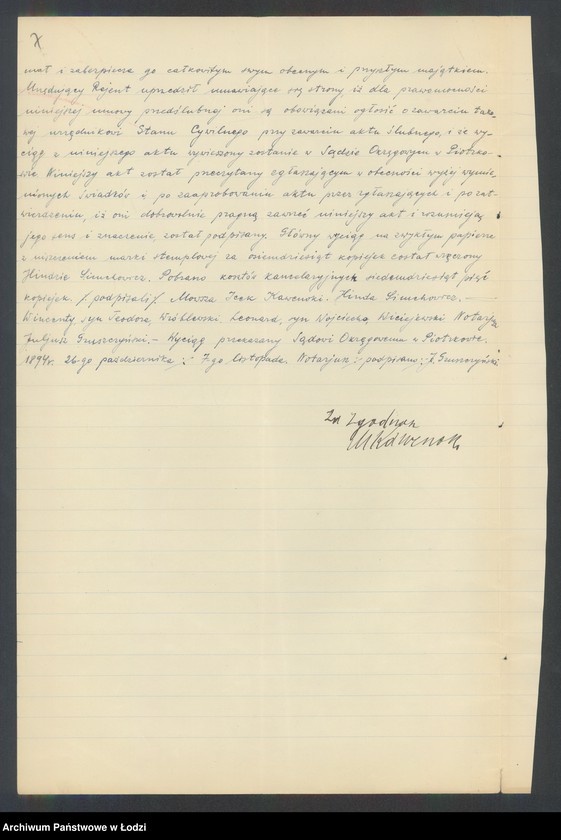 X
mał i zabezpiecza go całkowitym swym obecnym i przyszłym majątkiem.
Urzędujący Rejent uprzedził umawiające się strony iż dla prawomocności
niniejszej umowy przedślubnej oni są obowiązani ogłosić o zawarciu take-
wej urzędnikowi Stanu Cywilnego przy zawarciu aktu ślubnego, i że wy-
ciąg z niniejszego aktu wywieszony zostanie w Sądzie Okręgowym w Piotrko-
wie Niniejszy akt został przeczytany zgłaszającym w obecności wyżej wymie-
nionych świadków i po zaaprobowaniu aktu przez zgłaszających i po zat-
wierdzeniu, iż oni dobrowolnie pragną zawrzeć niniejszy akt i rozumieją
jego sens i znaczenie został podpisany. Główny wyciąg na zwykłym papierze
z naniesieniem marki stemplowej za osiemdziesiąt kopiejek został wręczony
Hindzie Simchowicz. Pobrano kosztów kancelaryjnych siedemdziesiąt pięć
kopiejek. /podpisali/ Mowsza Icek Kawenoki. Hinda Simchowicz. —
Wincenty syn Teodora, Wróblewski, Leonard, syn Wojciecha, Maciejewski Notarjusz
Juljusz Gruszczyński. — Wyciąg przekazany Sądowi Okręgowemu w Piotrkowie.
1894r. 26-go października /:/ 7-go listopada. Notarjusz :- podpisano :- J. Gruszczyński
Za Zgodność